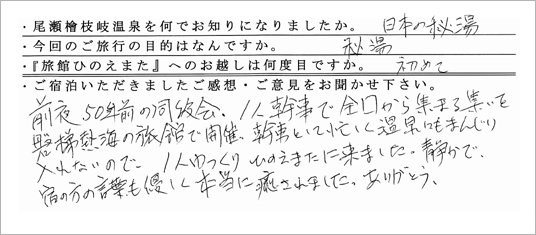 ・尾瀬檜枝岐温泉を何でお知りになりましたか。 日本の秘湯
・今回のご旅行の目的はなんですか。 秘湯
・『旅館ひのえまた』へのお越しは何度目ですか。 初めて
・ご宿泊いただきましたご感想・ご意見をお聞かせ下さい。
前夜50年前の同級会、1人幹事で全国から集まる集いを
磐梯熱海の旅館で開催、幹事として忙しく温泉にもまんじり
入れないので、1人ゆっくりひのえまたに来ました。静かで、
宿の方の言葉も優しく本当に癒されました。ありがとう、